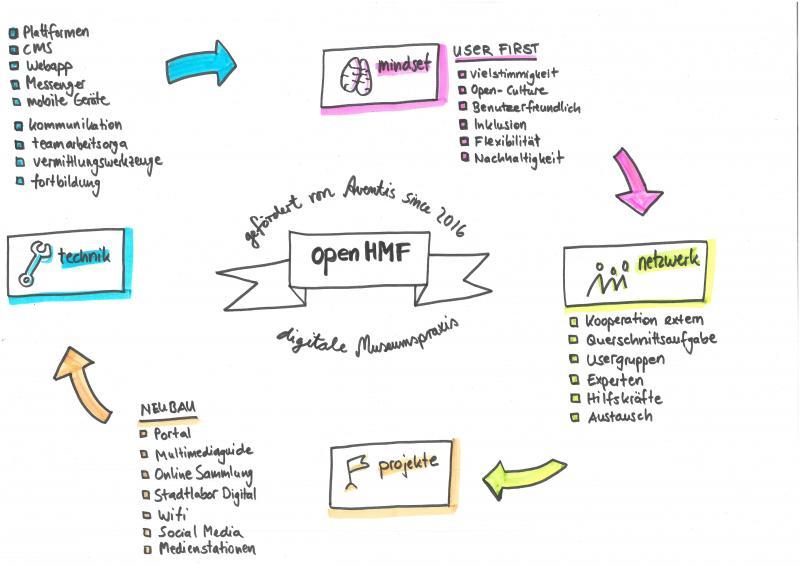 Plattformen
CMS
Webapp
Messenger
mobile Geräte
kommunikation
teamarbeitsorga
vermittlungswerkzeuge
fortbildung
mindset
USER FIRST
Vielstimmigkeit
Open-Culture
Benutzerfreundlich
Inklusion
Flexibilität
Nachhaltigkeit
technik
gefördert von Aventis since 2016
open HMF
digitale Museumspraxis
netzwerk
Kooperation extern
Querschnittsaufgabe
Usergruppen
Experten
Hilfskräfte
Austausch
NEUBAU
Portal
Multimediaguide
Online Sammlung
Stadtlabor Digital
Wifi
Social Media
Medienstationen
projekte